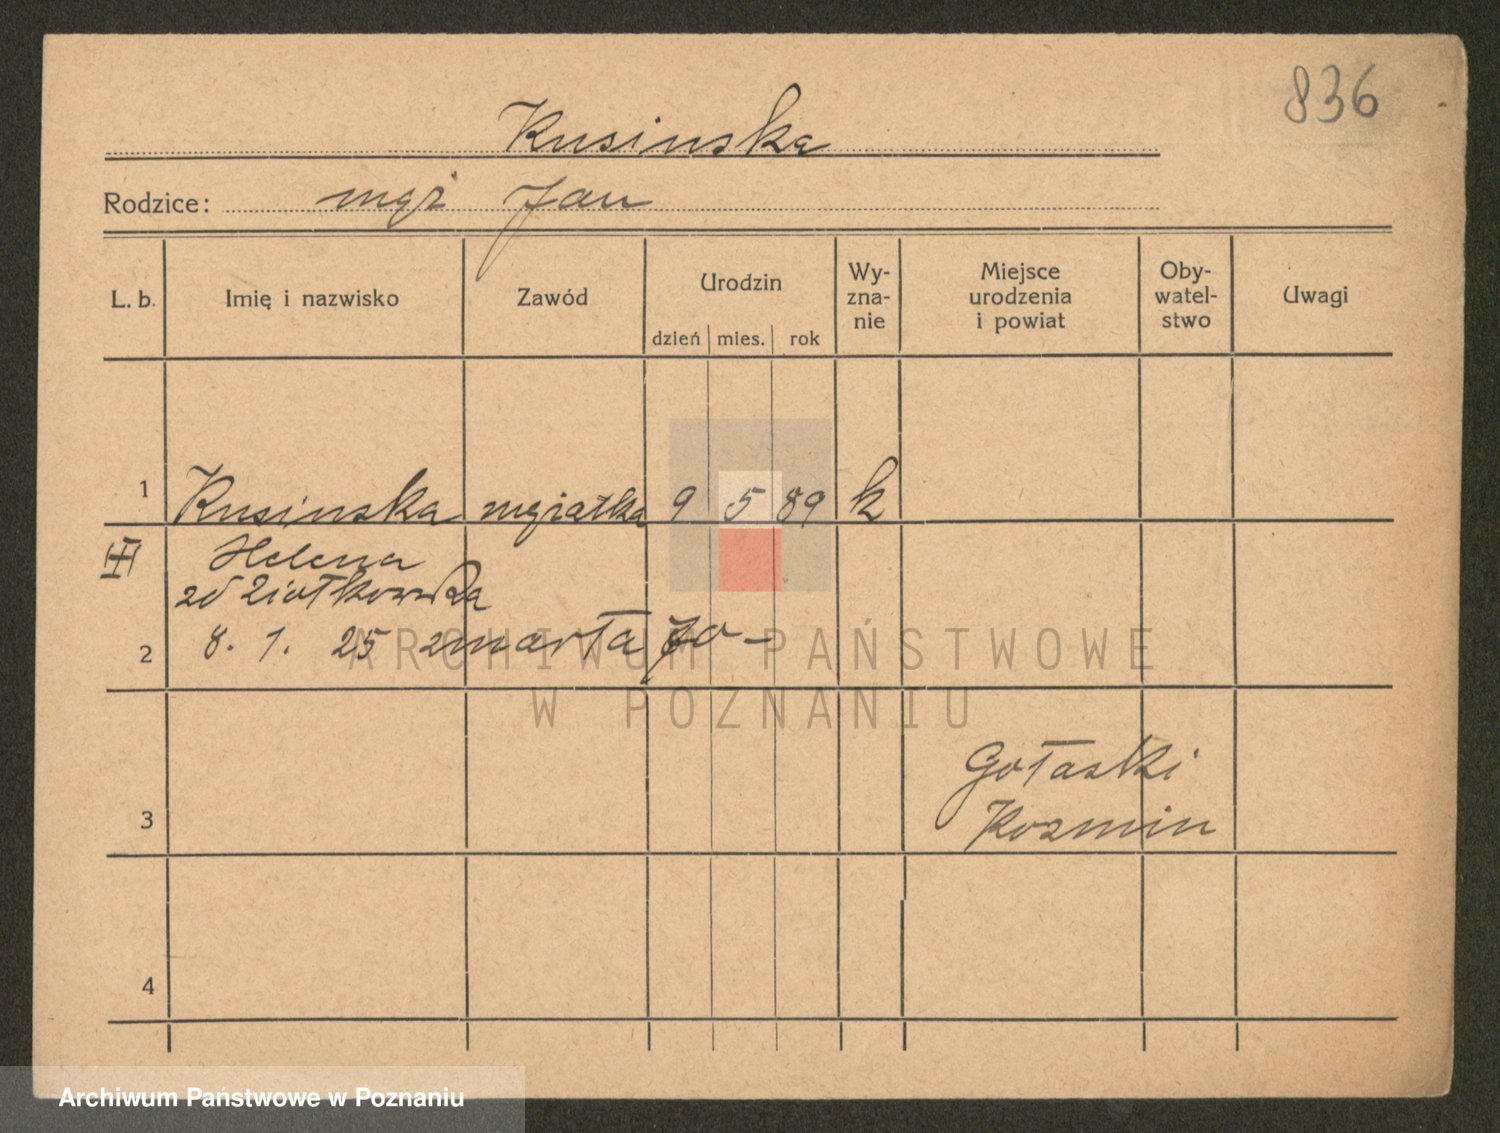 836
Kusinska
Rodzice: mąż Jan
L. b. Imię i nazwisko Zawód Urodzin dzień mies. rok Wy-zna-nie Miejsce urodzenia i powiat Oby-watel-stwo Uwagi
1 Kusinska mężatka 9 5 89 k
Helena
zd Ziołkowska
2 8. 1. 25 zmarła
ARCHIWUM PAŃSTWOWE
W POZNANIU
Gołaski
3 Kozmin
4
Archiwum Państwowe w Poznaniu